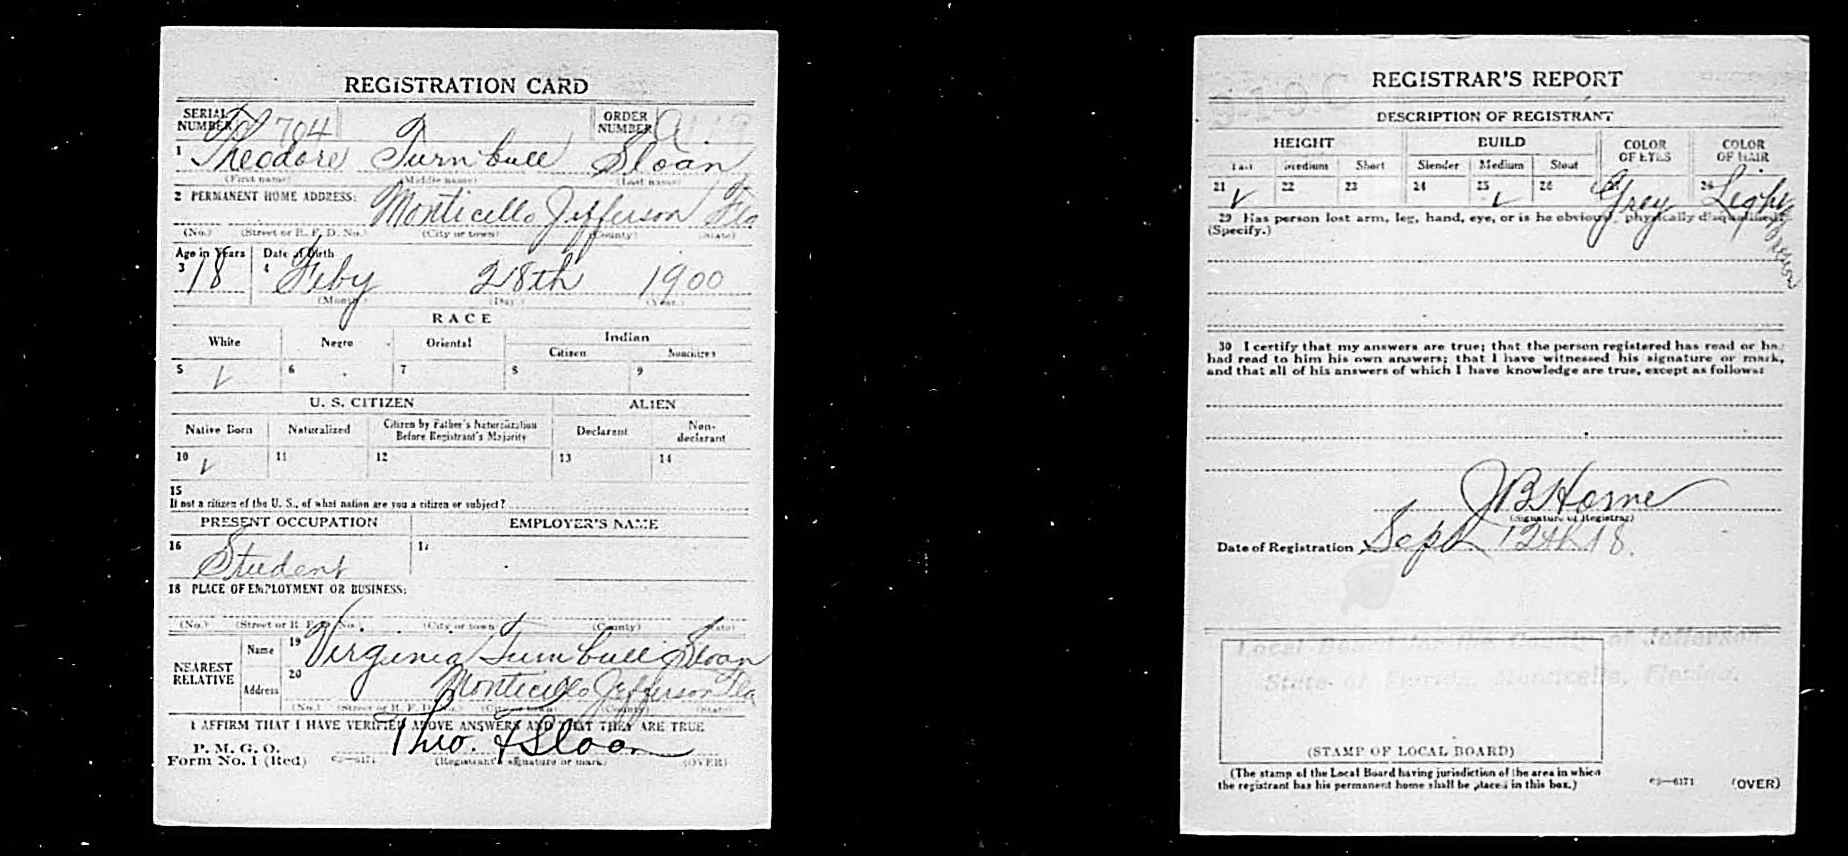 REGISTRATION CARD
SERIAL NUMBER 704 ORDER NUMBER A
1 Theodore Turnbull Sloan
(First name) (Middle name) (Last name)
2 PERMANENT HOME ADDRESS: Monticello Jefferson Fla
(No.) (Street or R. F. D. No.) (City or town) (County) (State)
Age in Years Date of Birth
3 18 4 Feby 28th 1900
(Month) (Day) (Year)
RACE
White Negro Oriental Indian
Citizen Noncitizen
5 ✓ 6 7 8 9
U. S. CITIZEN ALIEN
Native Born Naturalized Citizen by Father's Naturalization Before Registrant's Majority Declarant Non-declarant
10 ✓ 11 12 13 14
15
If not a citizen of the U. S., of what nation are you a citizen or subject?
PRESENT OCCUPATION EMPLOYER'S NAME
16 Student 17
18 PLACE OF EMPLOYMENT OR BUSINESS:
(No.) (Street or R. F. D. No.) (City or town) (County) (State)
NEAREST RELATIVE Name 19 Virginia Turnbull Sloan
Address 20 Monticello Jefferson Fla
(No.) (Street or R. F. D. No.) (City or town) (County) (State)
I AFFIRM THAT I HAVE VERIFIED ABOVE ANSWERS AND THAT THEY ARE TRUE
P. M. G. O.
Form No. 1 (Red) 03—6171 Theo. T Sloan (Registrant's signature or mark) (OVER)
REGISTRAR'S REPORT
DESCRIPTION OF REGISTRANT
HEIGHT BUILD COLOR OF EYES COLOR OF HAIR
Tall Medium Short Slender Medium Stout
21 ✓ 22 23 24 25 ✓ 26 Grey 28 Light Brown
29 Has person lost arm, leg, hand, eye, or is he obviously physically disqualified?
(Specify.)
30 I certify that my answers are true; that the person registered has read or has
had read to him his own answers; that I have witnessed his signature or mark,
and that all of his answers of which I have knowledge are true, except as follows:
J B Horne
(Signature of Registrar)
Date of Registration Sept 12th 18.
Local Board for the County of Jefferson
State of Florida, Monticello, Florida.
(STAMP OF LOCAL BOARD)
(The stamp of the Local Board having jurisdiction of the area in which
the registrant has his permanent home shall be placed in this box.)
03—6171 (OVER)